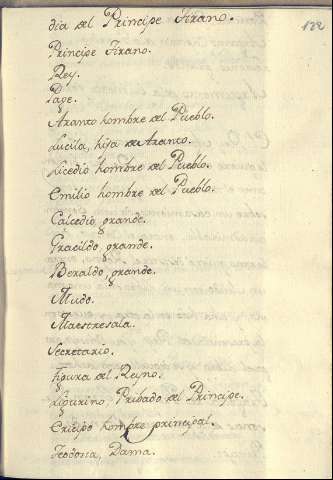 dia del Principe Tirano.
132
Principe Tirano.
Rey.
Page.
Aranto hombre del Pueblo.
Lucila, hija de Aranto.
Licedio hombre del Pueblo.
Emilio hombre del Pueblo.
Calcedio grande.
Gracildo grande.
Beraldo grande.
Mudo.
Maestresala.
Secretario.
Figura del Reyno.
Ligurino, Pribado del Principe.
Crispo hombre principal.
Teodosia, Dama.